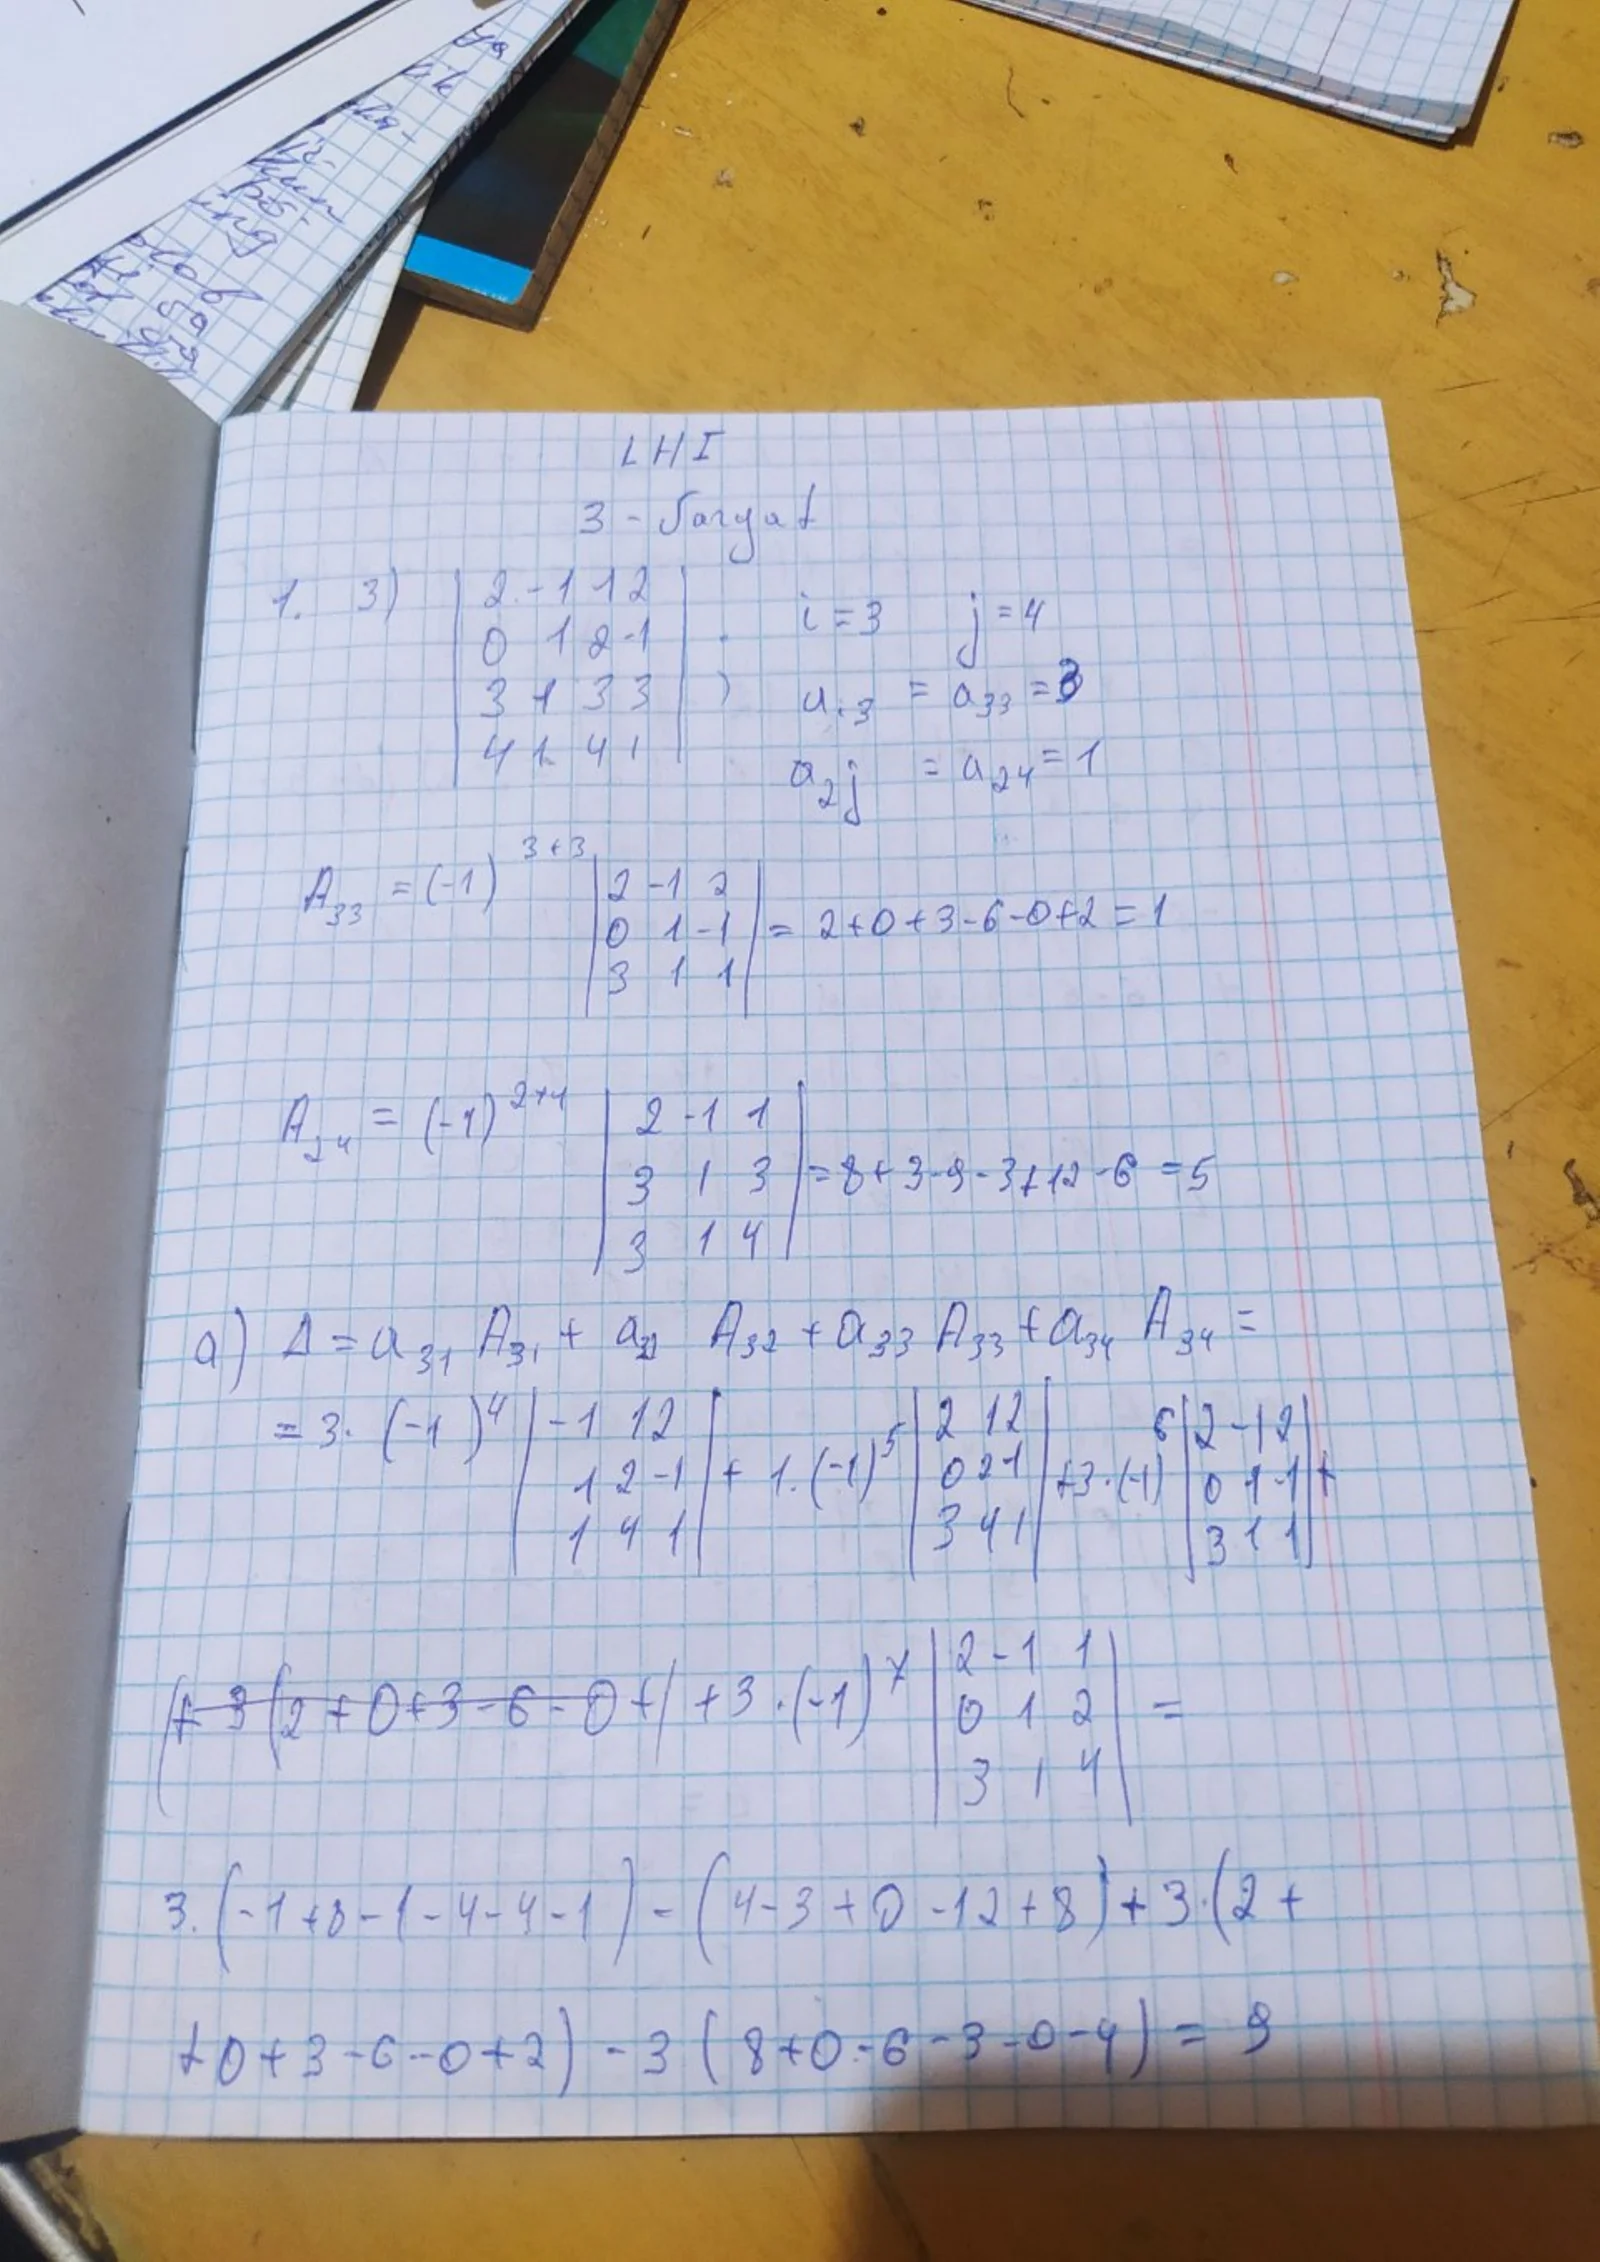 LHI
3 - Sargyat
1. 3) | 2 -1 1 2 | i = 3 j = 4
| 0 1 2 -1 |
| 3 1 3 3 | , a_{i3} = a_{33} = 3
| 4 1 4 1 | a_{2j} = a_{24} = 1
A_{33} = (-1)^{3+3} | 2 -1 2 |
| 0 1 -1 | = 2+0+3-6-0+2 = 1
| 3 1 1 |
A_{24} = (-1)^{2+4} | 2 -1 1 |
| 3 1 3 | = 8+3-9-3+12-6 = 5
| 3 1 4 |
a) Δ = a_{31} A_{31} + a_{32} A_{32} + a_{33} A_{33} + a_{34} A_{34} =
= 3·(-1)^4 | -1 1 2 | + 1·(-1)^5 | 2 1 2 | + 3·(-1)^6 | 2 -1 2 | +
| 1 2 -1 | | 0 2 -1 | | 0 1 -1 |
| 1 4 1 | | 3 4 1 | | 3 1 1 |
(+ 3 (2+0+3-6-0+ | + 3·(-1)^7 | 2 -1 1 |
| 0 1 2 | =
| 3 1 4 |
3·(-1+8-1-4-4-1) - (4-3+0-12+8) + 3·(2+
+0+3-6-0+2) - 3(8+0-6-3-0-4) = 9